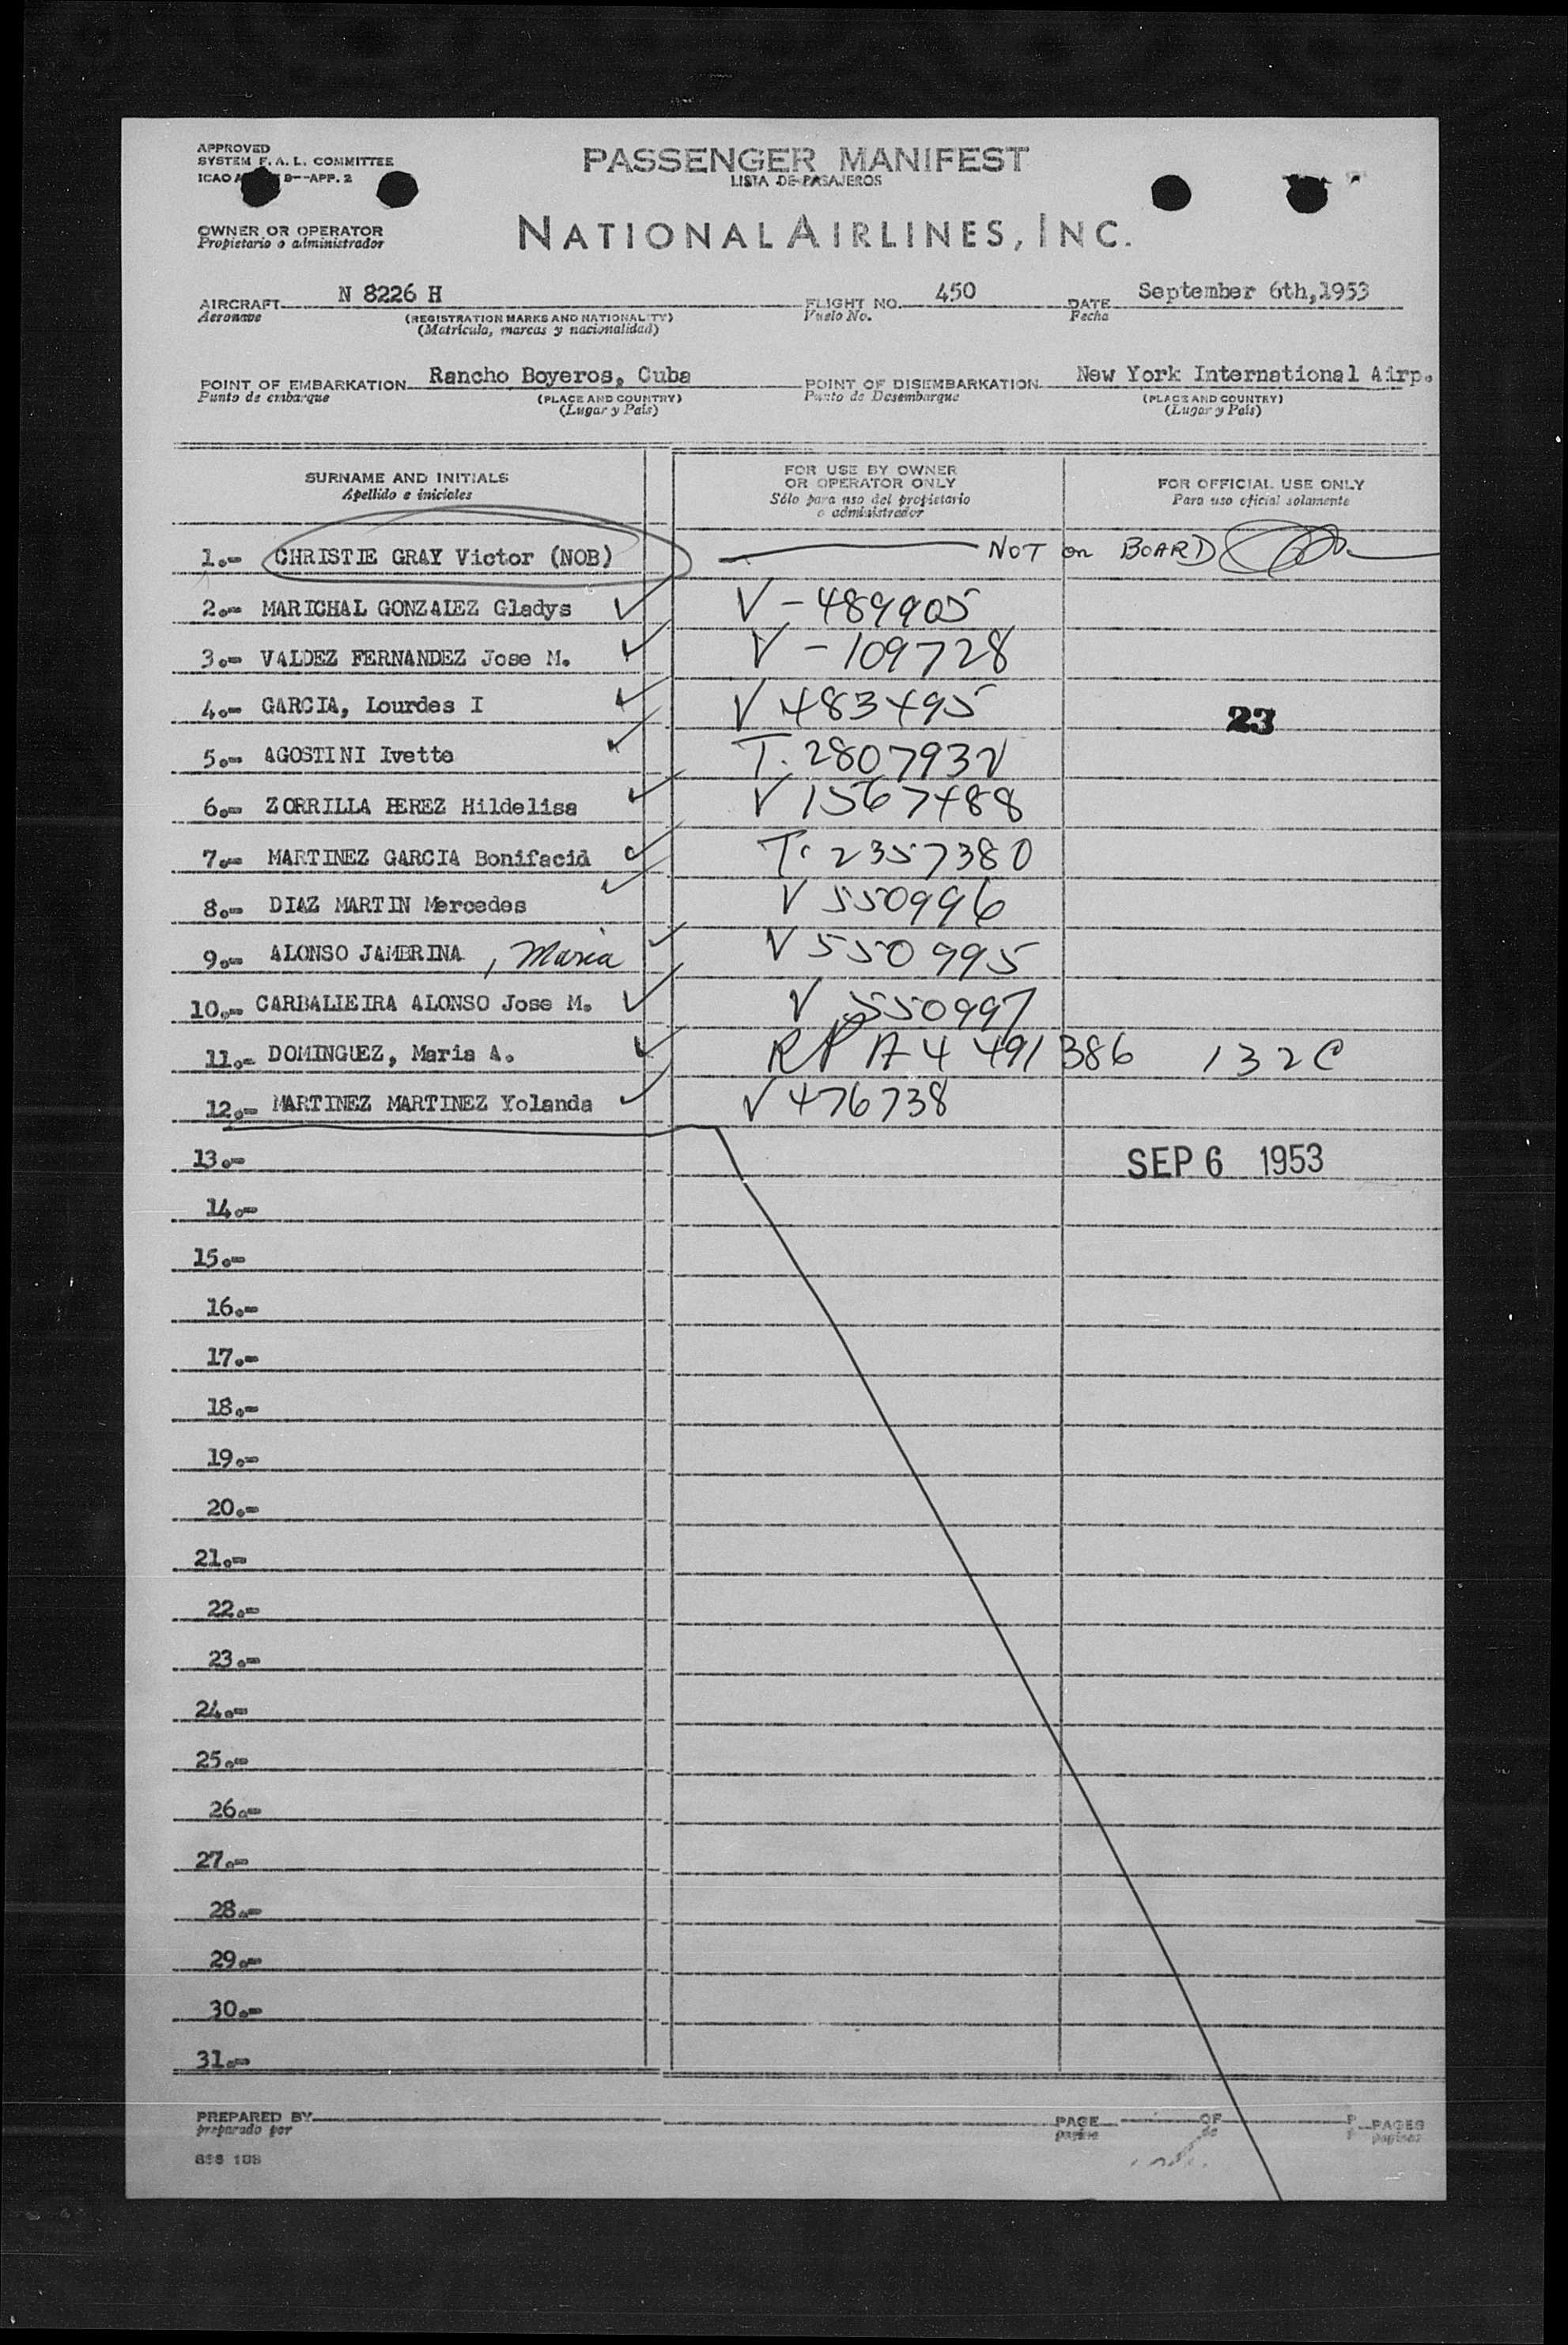 APPROVED
SYSTEM F. A. L. COMMITTEE
ICAO 9--APP. 2
PASSENGER MANIFEST
LISTA DE PASAJEROS
OWNER OR OPERATOR
Propietario o administrador
NATIONAL AIRLINES, INC.
AIRCRAFT N 8226 H FLIGHT NO. 450 DATE September 6th,1953
Aeronave (REGISTRATION MARKS AND NATIONALITY) Vuelo No. Fecha
(Matricula, marcas y nacionalidad)
POINT OF EMBARKATION Rancho Boyeros, Cuba POINT OF DISEMBARKATION New York International Airp.
Punto de embarque (PLACE AND COUNTRY) Punto de Desembarque (PLACE AND COUNTRY)
(Lugar y País) (Lugar y País)
SURNAME AND INITIALS FOR USE BY OWNER OR OPERATOR ONLY FOR OFFICIAL USE ONLY
Apellido e iniciales Sólo para uso del propietario o administrador Para uso oficial solamente
1.- CHRISTIE GRAY Victor (NOB) NOT on BOARD
2.- MARICHAL GONZALEZ Gladys V-489905
3.- VALDEZ FERNANDEZ Jose M. V-109728
4.- GARCIA, Lourdes I V 483495
23
5.- AGOSTINI Ivette T. 2807932
6.- ZORRILLA PEREZ Hildelisa V 1567488
7.- MARTINEZ GARCIA Bonifacia T. 2357380
8.- DIAZ MARTIN Mercedes V 550996
9.- ALONSO JAMBRINA , Maria V 550995
10.- CARBALLEIRA ALONSO Jose M. V 550997
11.- DOMINGUEZ, Maria A. RP A4 491386 132C
12.- MARTINEZ MARTINEZ Yolanda V 476738
13.- SEP 6 1953
14.-
15.-
16.-
17.-
18.-
19.-
20.-
21.-
22.-
23.-
24.-
25.-
26.-
27.-
28.-
29.-
30.-
31.-
PREPARED BY PAGE OF PAGES
preparado por pagina de paginas